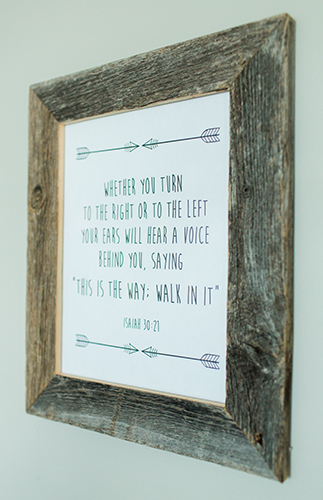 WHETHER YOU TURN
TO THE RIGHT OR TO THE LEFT
YOUR EARS WILL HEAR A VOICE
BEHIND YOU, SAYING
"THIS IS THE WAY; WALK IN IT"
ISAIAH 30:21